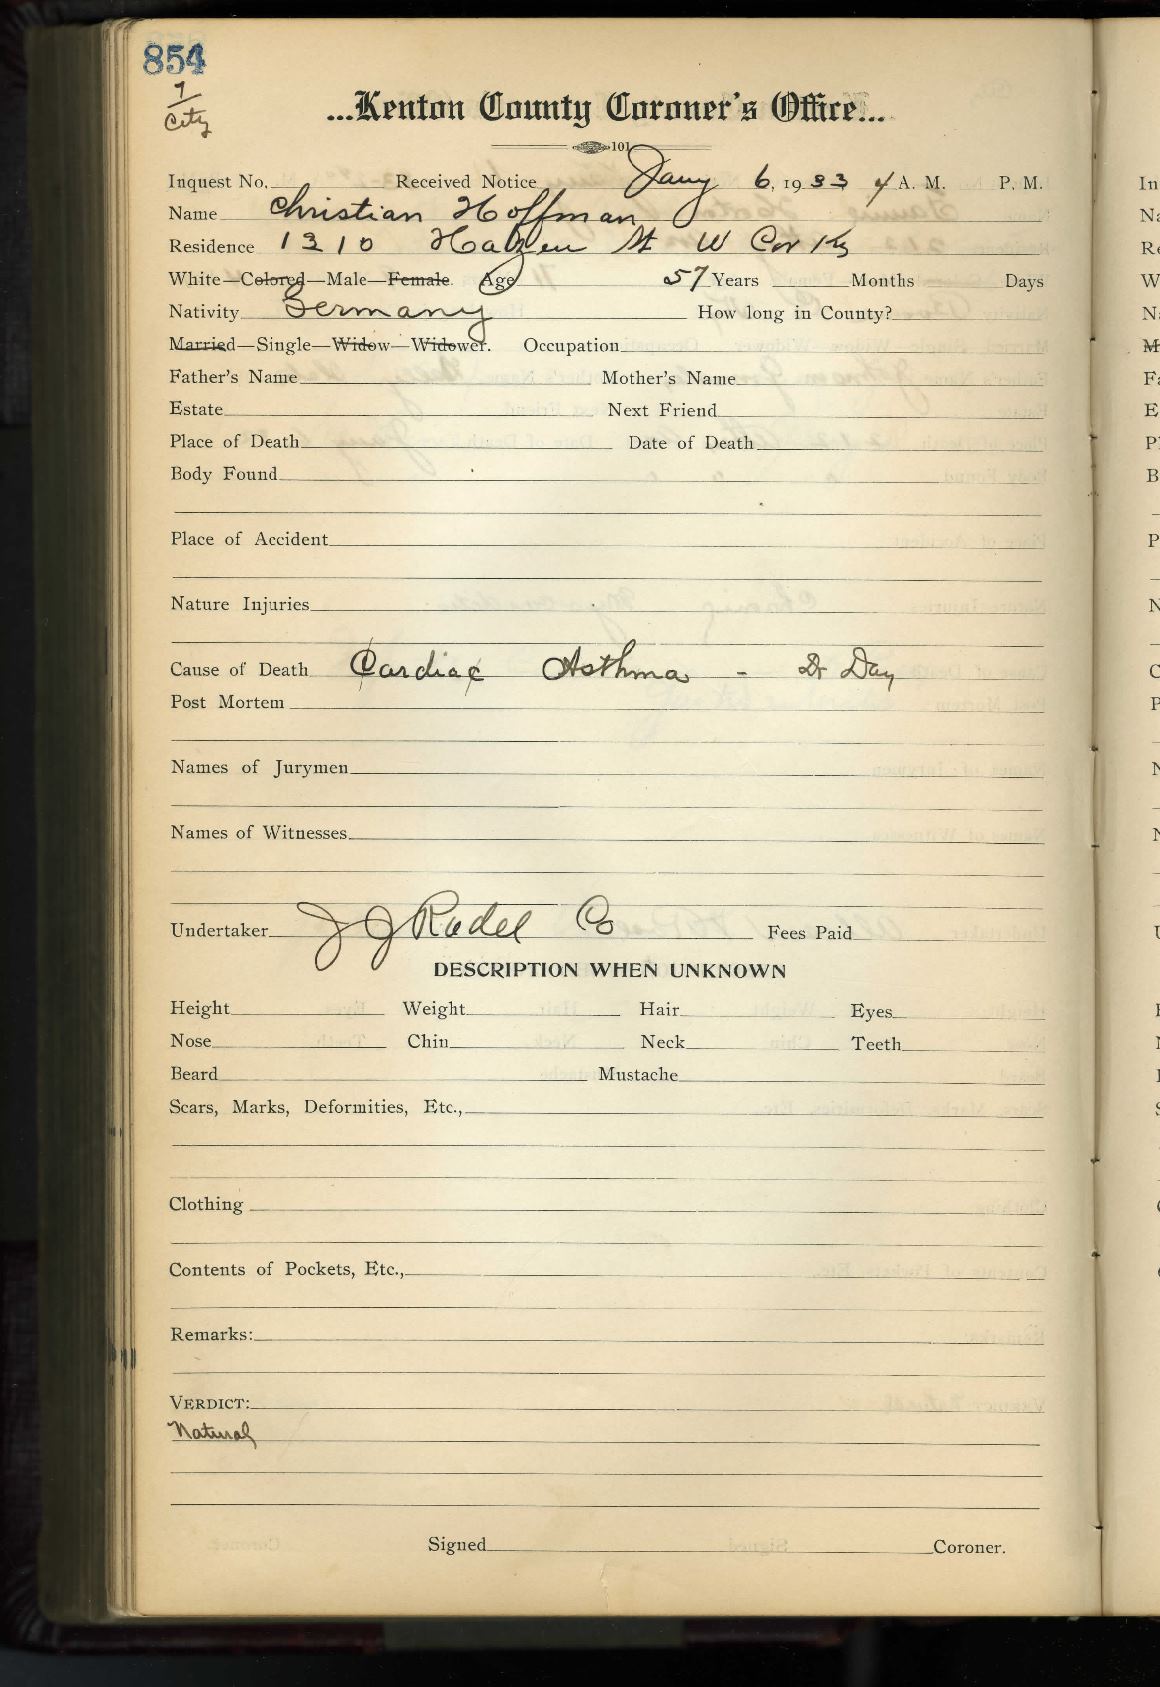 854
7
City
...Kenton County Coroner's Office...
101
Inquest No. Received Notice Jany 6, 1933 4 A. M. P. M.
Name Christian Hoffman
Residence 1310 Hazen St W Cov Ky
White—Colored—Male—Female. Age 57 Years Months Days
Nativity Germany How long in County?
Married—Single—Widow—Widower. Occupation
Father's Name Mother's Name
Estate Next Friend
Place of Death Date of Death
Body Found
Place of Accident
Nature Injuries
Cause of Death Cardiac Asthma - Dr Day
Post Mortem
Names of Jurymen
Names of Witnesses
Undertaker J J Radel Co Fees Paid
DESCRIPTION WHEN UNKNOWN
Height Weight Hair Eyes
Nose Chin Neck Teeth
Beard Mustache
Scars, Marks, Deformities, Etc.,
Clothing
Contents of Pockets, Etc.,
Remarks:
VERDICT:
Natural
Signed Coroner.